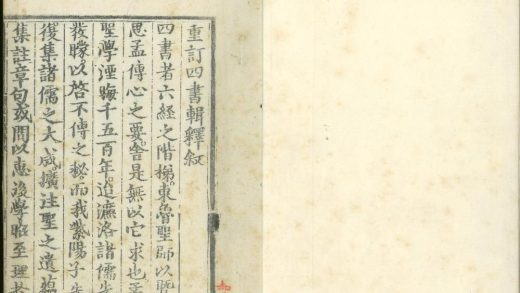 重訂四書輯釋叙
四書者六経之階梯東魯聖師以曁
思孟傳心之要舍是無以它求也孟
聖學湮晦千五百年迨濂洛諸儒先
發矇以啓不傳之秘而我紫陽子朱
復集諸儒之大成擴往聖之遺蘊
集註章句或問以惠後學昭至理於